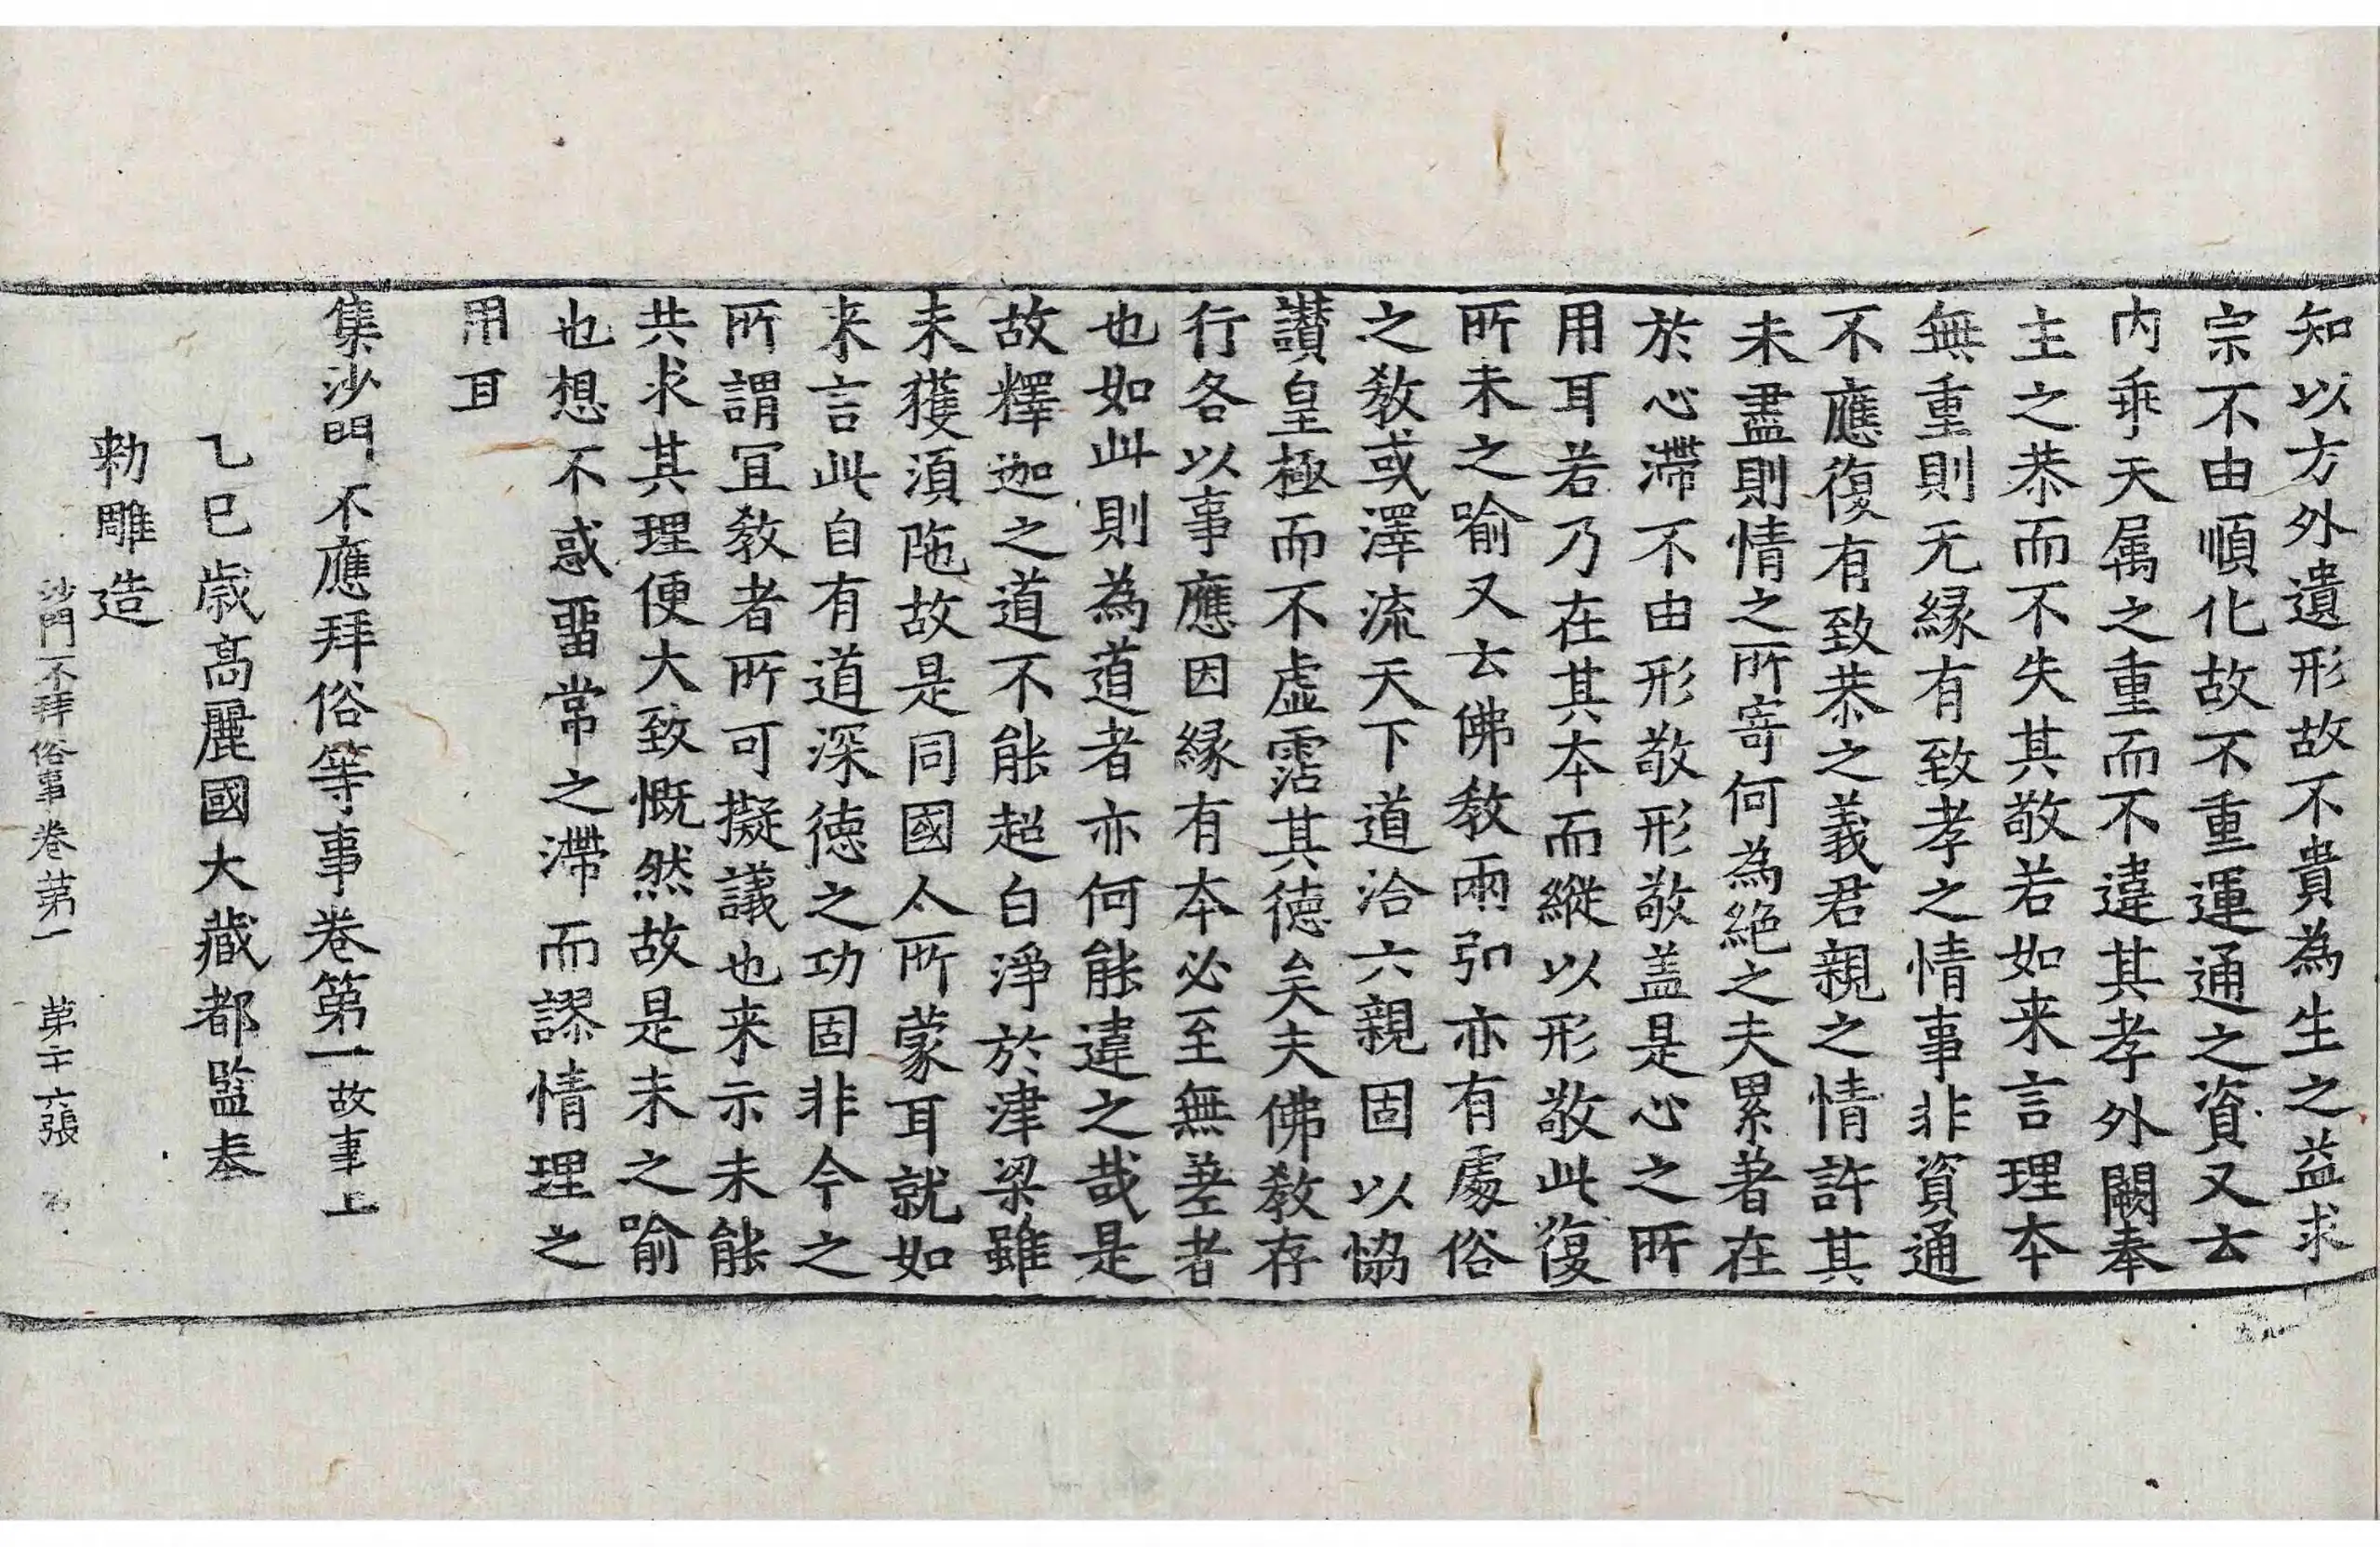 知以方外遺形故不貴為生之益求
宗不由順化故不重運通之資又去
内乖天属之重而不違其孝外闕奉
主之恭而不失其敬若如来言理夲
無重則无緣有致孝之情事非資通
不應復有致恭之義君親之情許其
未盡則情之所寄何為絶之夫累著在
於心滯不由形敬形敬盖是心之所
用耳若乃在其夲而縱以形敬此復
所未之喻又云佛教兩弘亦有處俗
之教或澤流天下道洽六親固以恊
讃皇極而不虛霑其德矣夫佛教存
行各以事應因緣有夲必至無差者
也如此則為道者亦何能違之哉是
故釋迦之道不能超白淨於津梁雖
未獲湏陁故是同國人所蒙耳就如
来言此自有道深德之功固非今之
所謂冝教者所可擬議也来示未能
共求其理便大致慨然故是未之喻
也想不惑畱常之滯而謬情理之
用耳
集沙門不應拜俗等事卷第一 故事上
乙巳歳髙麗國大藏都監奉
勑雕造
沙門不拜俗事卷第一 第二十六張